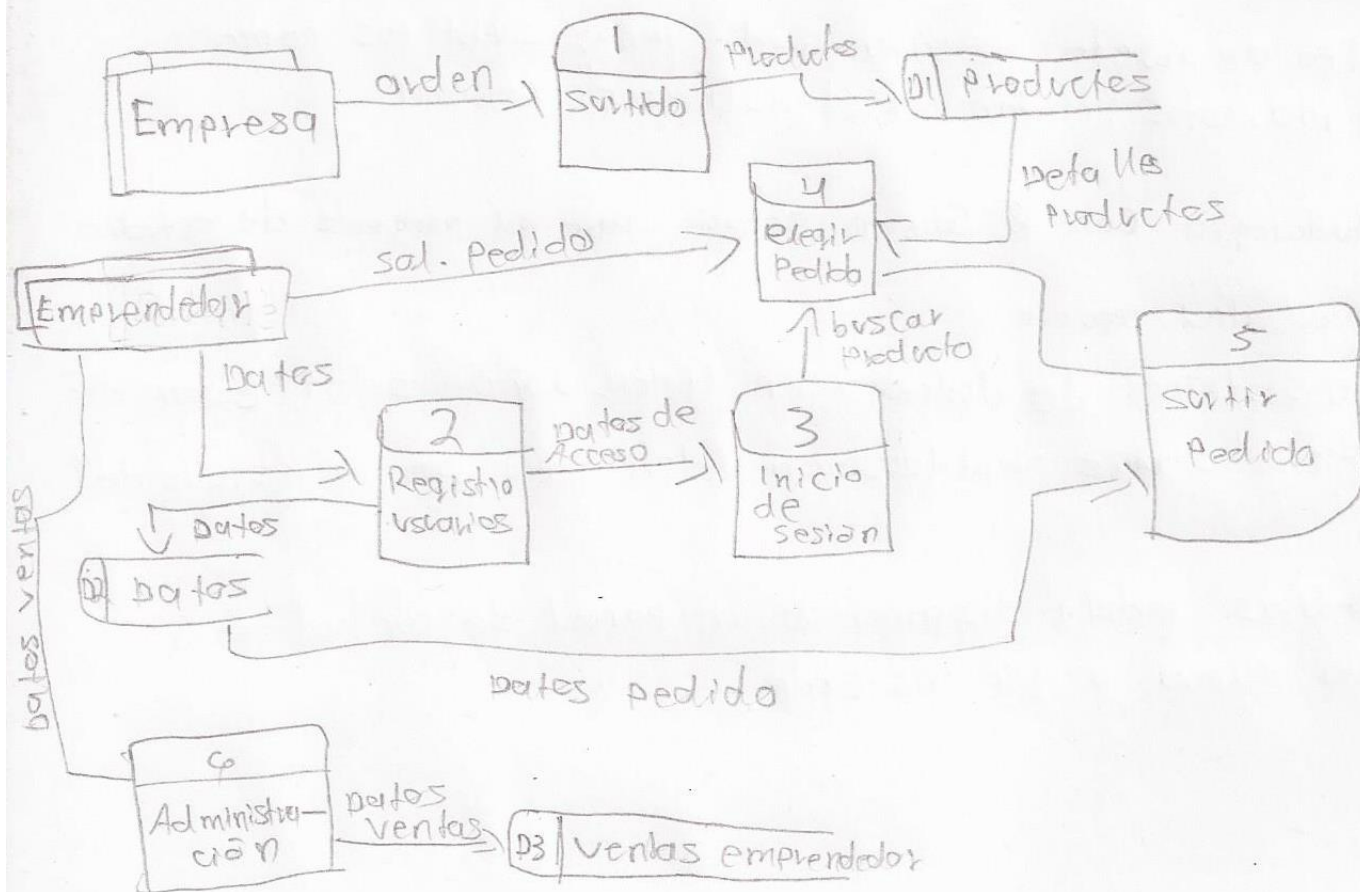 Empresa
orden
1
Surtido
Productos
D1 Productos
Detalles
Productos
4
elegir
Pedido
Emprendedor
sol. Pedido
Datos
buscar
Producto
5
surtir
Pedido
2
Registro
usuarios
Datos de
Acceso
3
Inicio
de
sesión
Datos
D2 Datos
Datos pedido
Datos ventas
6
Administra-
ción
Datos
ventas
D3 ventas emprendedor